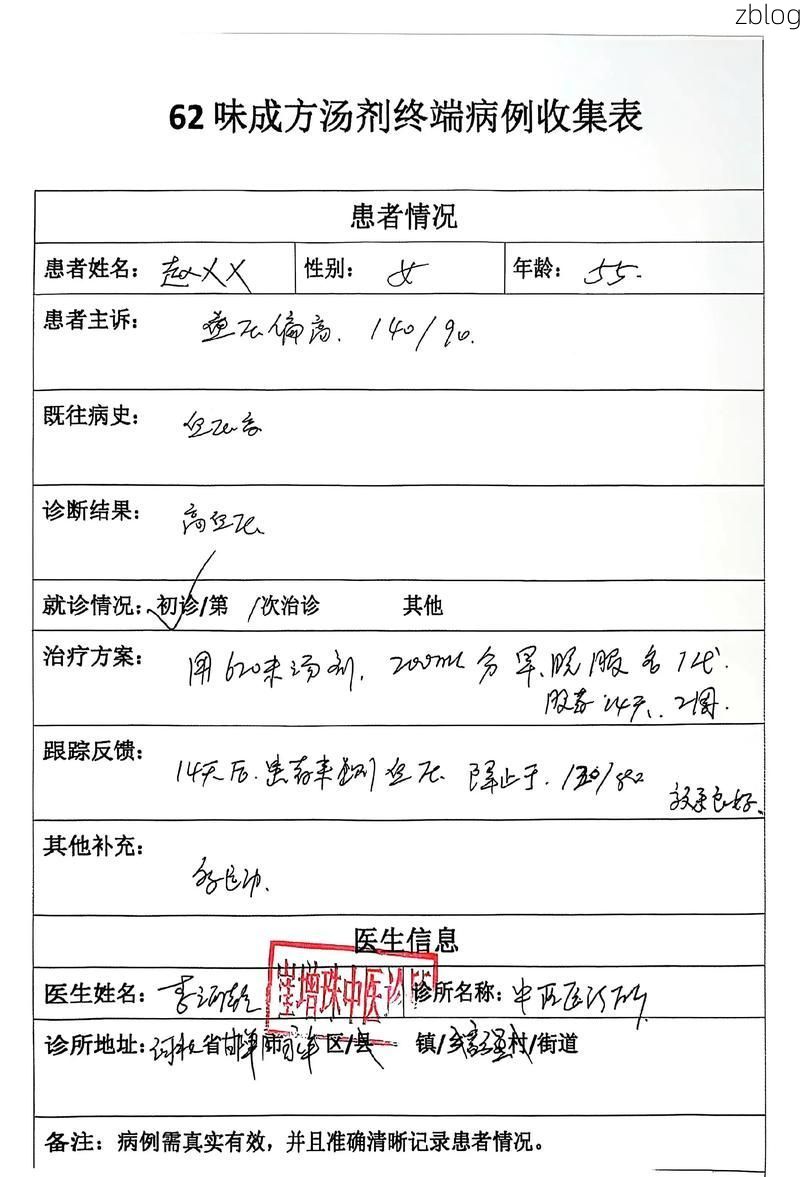 zblog
62味成方汤剂终端病例收集表
患者情况
患者姓名：赵XX 性别：女 年龄：55.
患者主诉：血压偏高. 140/90.
既往病史：血压高
诊断结果：高血压
就诊情况：初诊/第 /次治诊 其他
治疗方案：用620味汤剂. 200ml 分早.晚服各1代.
服药14天、2周.
跟踪反馈：14天后.患者来测血压 降止于.
效果良好.
其他补充：多运动.
医生信息
医生姓名：李 崔增珠中医诊所 诊所名称：中医诊所
诊所地址：河北省邯郸市 区/县 镇/乡 村/街道
备注：病例需真实有效，并且准确清晰记录患者情况。